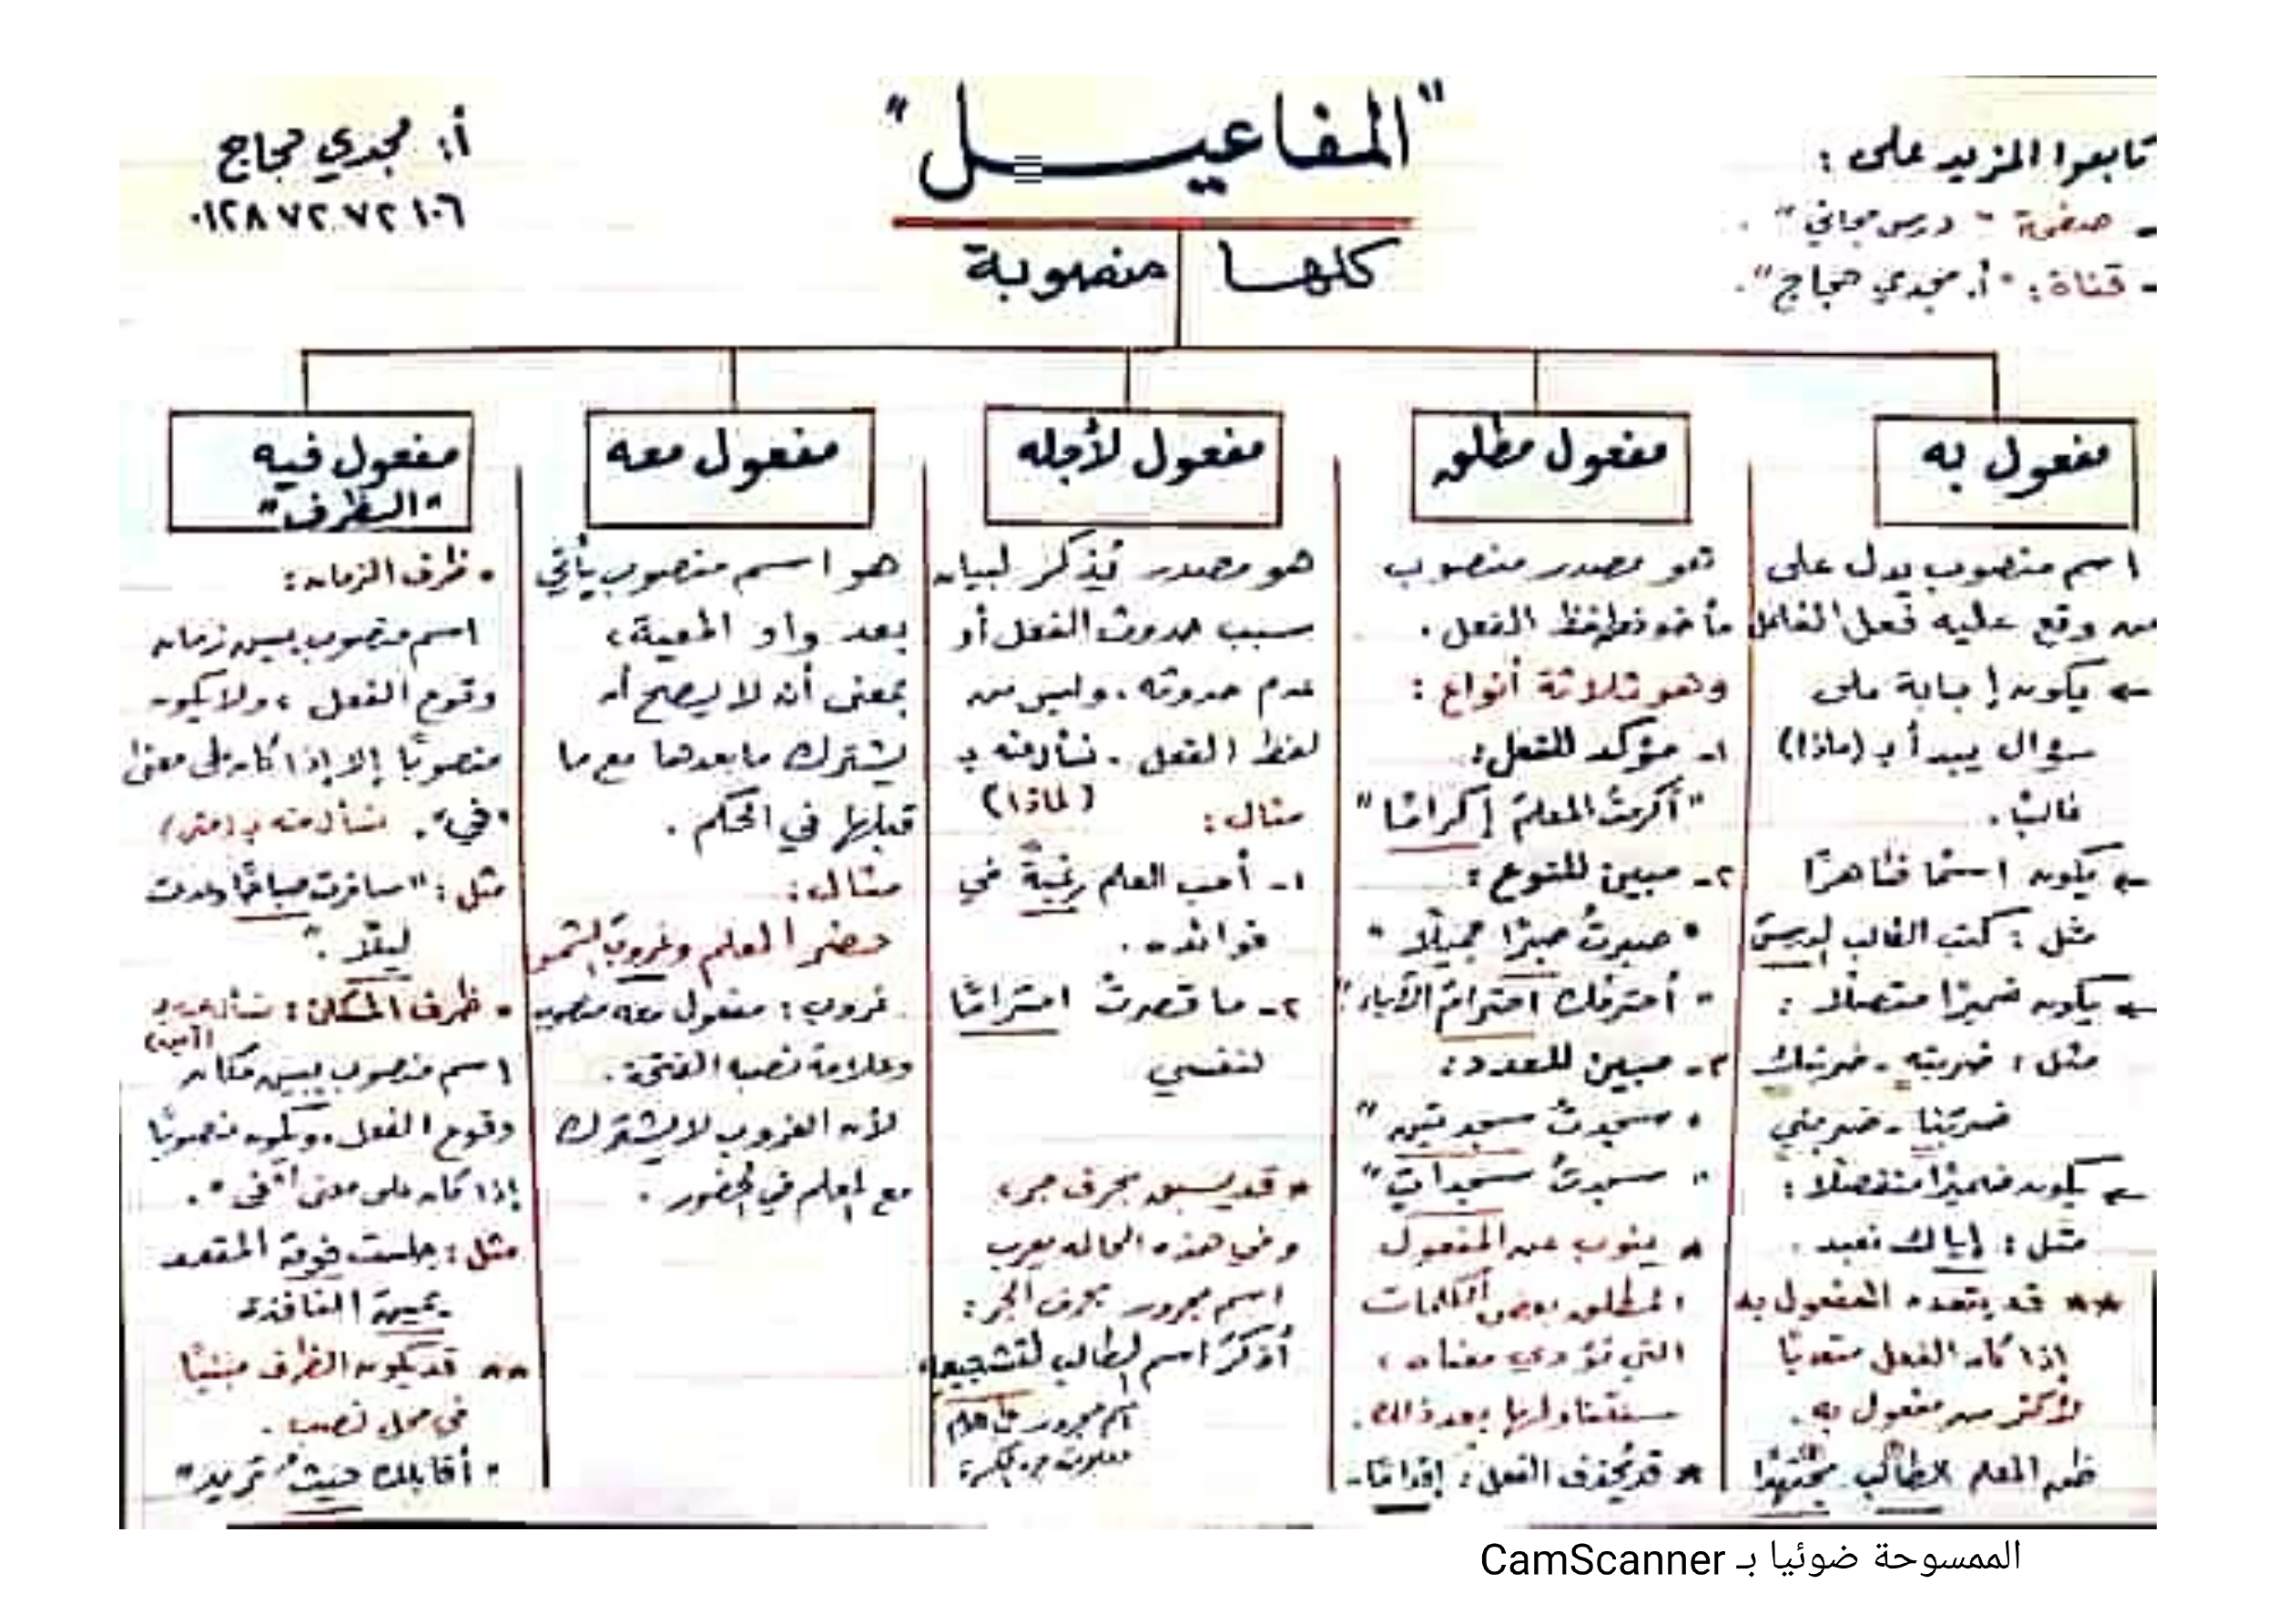 "المفاعيل"
كلها منصوبة
تابعوا المزيد على:
- صفحة "درس مجاني".
- قناة: "أ. مجدي حجاج".
أ: مجدي حجاج
٠١٢٨٧٢٧٢١٠٦
مفعول به
اسم منصوب يدل على
من وقع عليه فعل الفاعل
← يكون إجابة على
سؤال يبدأ بـ (ماذا)
غالبًا.
← يكون اسمًا ظاهرًا
مثل: كتب الطالب الدرسَ
← يكون ضميرًا متصلًا:
مثل: ضربته - ضربتك
ضربنا - ضربني
← يكون ضميرًا منفصلًا:
مثل: إياك نعبد.
** قد يتعدد المفعول به
إذا كان الفعل متعديًا
لأكثر من مفعول به.
ظن المعلم الطالب مجتهدًا
مفعول مطلق
هو مصدر منصوب
مأخوذ من لفظ الفعل.
وهو ثلاثة أنواع:
١- مؤكد للفعل:
"أكرمتُ المعلمَ إكرامًا"
٢- مبين للنوع:
"صبرتُ صبرًا جميلًا"
"أحترمك احترامَ الآباء"
٣- مبين للعدد:
"سجدتُ سجدتين"
"سجدتُ سجداتٍ"
* ينوب عن المفعول
المطلق بعض الكلمات
التي تؤدي معناه،
سنتناولها بعد ذلك.
* قد يُحذف الفعل: إقدامًا-
مفعول لأجله
هو مصدر يُذكر لبيان
سبب حدوث الفعل أو
عدم حدوثه. وليس من
لفظ الفعل. نسأل عنه بـ
(لماذا)
مثال:
١- أحب العلم رغبةً في
فوائده.
٢- ما قصرتُ احترامًا
لنفسي
* قد يسبق بحرف جر،
وفي هذه الحالة يعرب
اسم مجرور بحرف الجر:
أذكرُ اسم الطالب لتشجيعه
اسم مجرور باللام
وعلامة جره الكسرة
مفعول معه
هو اسم منصوب يأتي
بعد واو المعية،
بمعنى أنه لا يصح أن
يشترك ما بعدها مع ما
قبلها في الحكم.
مثال:
حضر المعلم وغروبَ الشمس
غروب: مفعول معه منصوب
وعلامة نصبه الفتحة.
لأن الغروب لا يشترك
مع المعلم في الحضور.
مفعول فيه
"الظرف"
• ظرف الزمان:
اسم منصوب يبين زمان
وقوع الفعل، ولا يكون
منصوبًا إلا إذا كان على معنى
"في". نسأل عنه بـ (متى)
مثل: "سافرت صباحًا وعدت
ليلًا."
• ظرف المكان: نسأل عنه بـ
(أين)
اسم منصوب يبين مكان
وقوع الفعل، ويكون منصوبًا
إذا كان على معنى "في".
مثل: جلست فوق المقعد
يمين النافذة
** قد يكون الظرف مبنيًا
في محل نصب.
"أقابلك حيثُ تريد"
الممسوحة ضوئيا بـ CamScanner